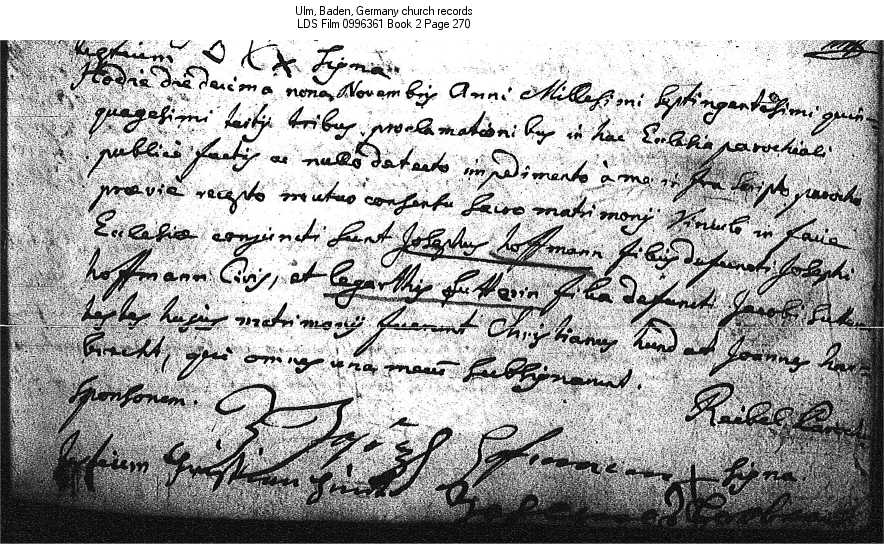 Ulm, Baden, Germany church records
LDS Film 0996361 Book 2 Page 270
Signa
Hodie die decima nona Novembris Anni Millesimi septingentesimi quin-
quagesimi tertij tribus proclamationibus in hac Ecclesia parochiali
publicè factis ac nullo detecto impedimento à me infra scripto parocho
præviè recepto mutuo consensu sacro matrimonij Vinculo in facie
Ecclesiæ conjuncti sunt Josephus hoffmann filius defuncti Josephi
hoffmann Civis, et filia defuncti Jacobi
testes hujus matrimonij fuerunt Christianus hund et Joannes har-
brecht, qui omnes una mecum subsignarunt.
Sponsorum. Reibel Paroch
Signa